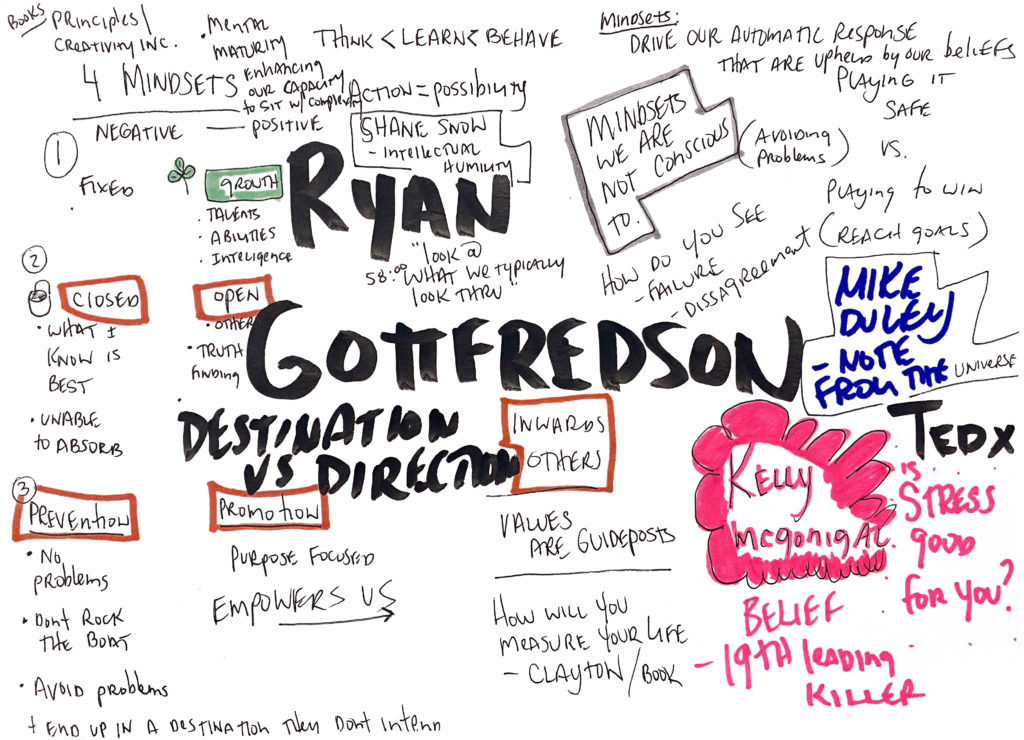 BOOKS
PRINCIPLES/
CREATIVITY INC.
4 MINDSETS
NEGATIVE — POSITIVE
• MENTAL
MATURITY
ENHANCING
OUR CAPACITY
TO SIT W/ COMPLEXITY
THINK < LEARN < BEHAVE
ACTION = POSSIBILITY
SHANE SNOW
- INTELLECTUAL
HUMILITY
MINDSETS:
DRIVE OUR AUTOMATIC RESPONSE
THAT ARE UPHELD BY OUR BELIEFS
PLAYING IT
SAFE
VS.
PLAYING TO WIN
(REACH GOALS)
MINDSETS
WE ARE
NOT CONSCIOUS
TO.
(AVOIDING
PROBLEMS)
HOW DO YOU SEE
- FAILURE
- DISSAGREEMENT
1
FIXED
GROWTH
• TALENTS
• ABILITIES
• INTELLIGENCE
RYAN
GOTTFREDSON
58:00
"LOOK @
WHAT WE TYPICALLY
LOOK THRU"
2
CLOSED
• WHAT I
KNOW IS
BEST
• UNABLE
TO ABSORB
OPEN
• OTHERS
• TRUTH
FINDING
MIKE
DULEY
- NOTE
FROM THE UNIVERSE
DESTINATION
VS DIRECTION
INWARDS
OTHERS
3
PREVENTION
• NO
PROBLEMS
• DONT ROCK
THE BOAT
• AVOID PROBLEMS
+ END UP IN A DESTINATION THEY DONT INTEND
PROMOTION
PURPOSE FOCUSED
EMPOWERS US
VALUES
ARE GUIDEPOSTS
HOW WILL YOU
MEASURE YOUR LIFE
- CLAYTON/BOOK
TEDX
KELLY
MCGONIGAL
IS
STRESS
GOOD
FOR YOU?
BELIEF
- 19TH LEADING
KILLER